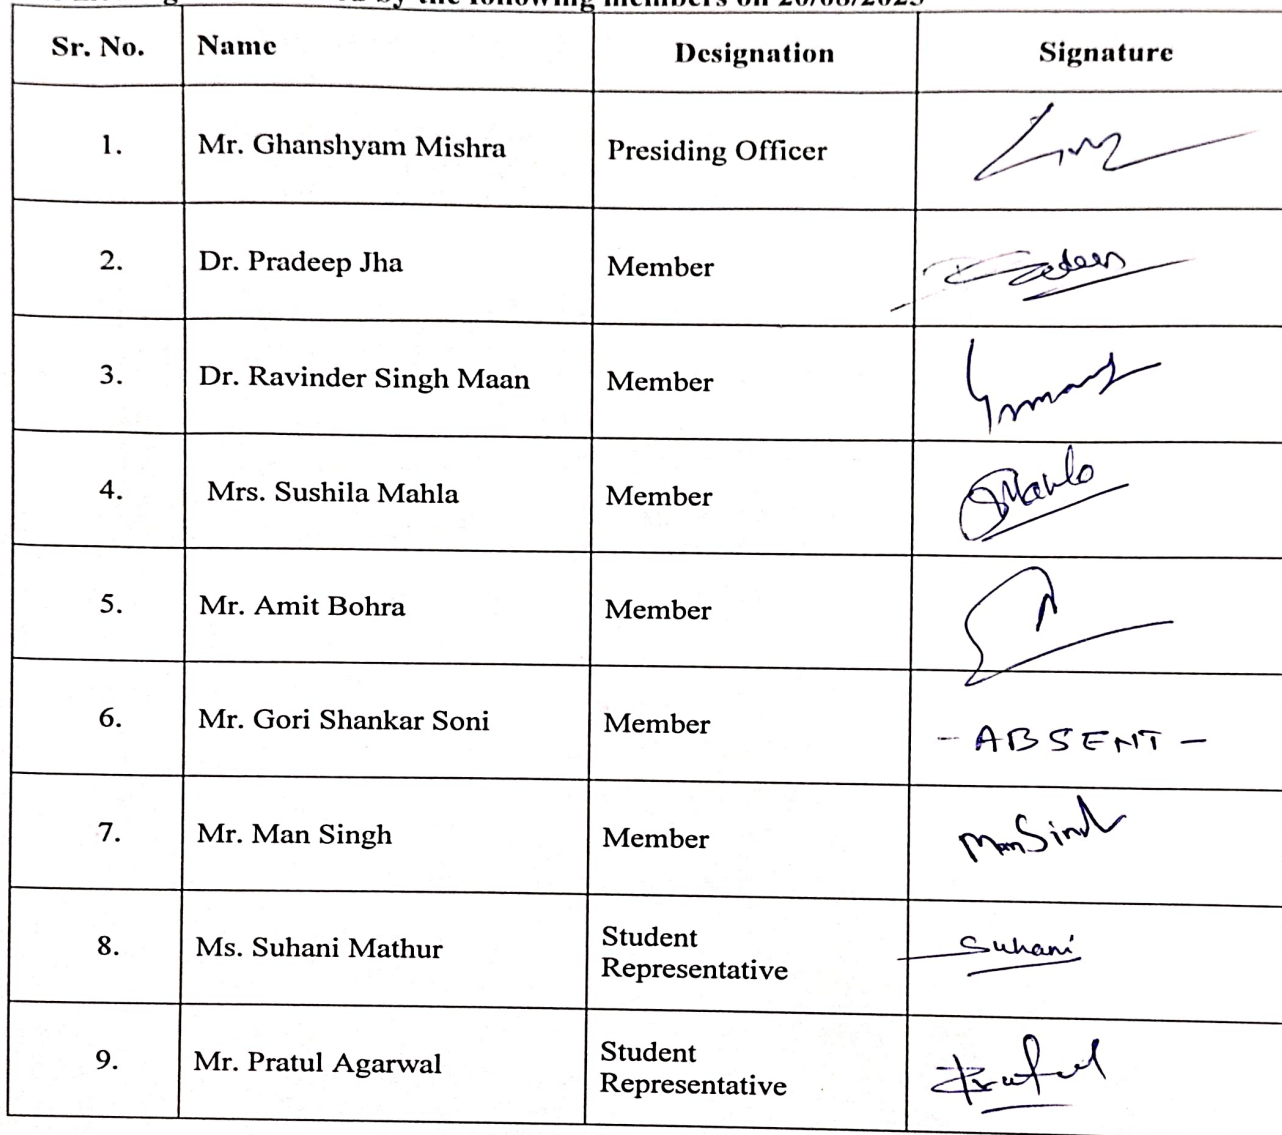 by the following members on 20/08/2023
Sr. No. Name Designation Signature
1. Mr. Ghanshyam Mishra Presiding Officer
2. Dr. Pradeep Jha Member
3. Dr. Ravinder Singh Maan Member
4. Mrs. Sushila Mahla Member
5. Mr. Amit Bohra Member
6. Mr. Gori Shankar Soni Member - ABSENT -
7. Mr. Man Singh Member ManSingh
8. Ms. Suhani Mathur Student Suhani
Representative
9. Mr. Pratul Agarwal Student Pratul
Representative